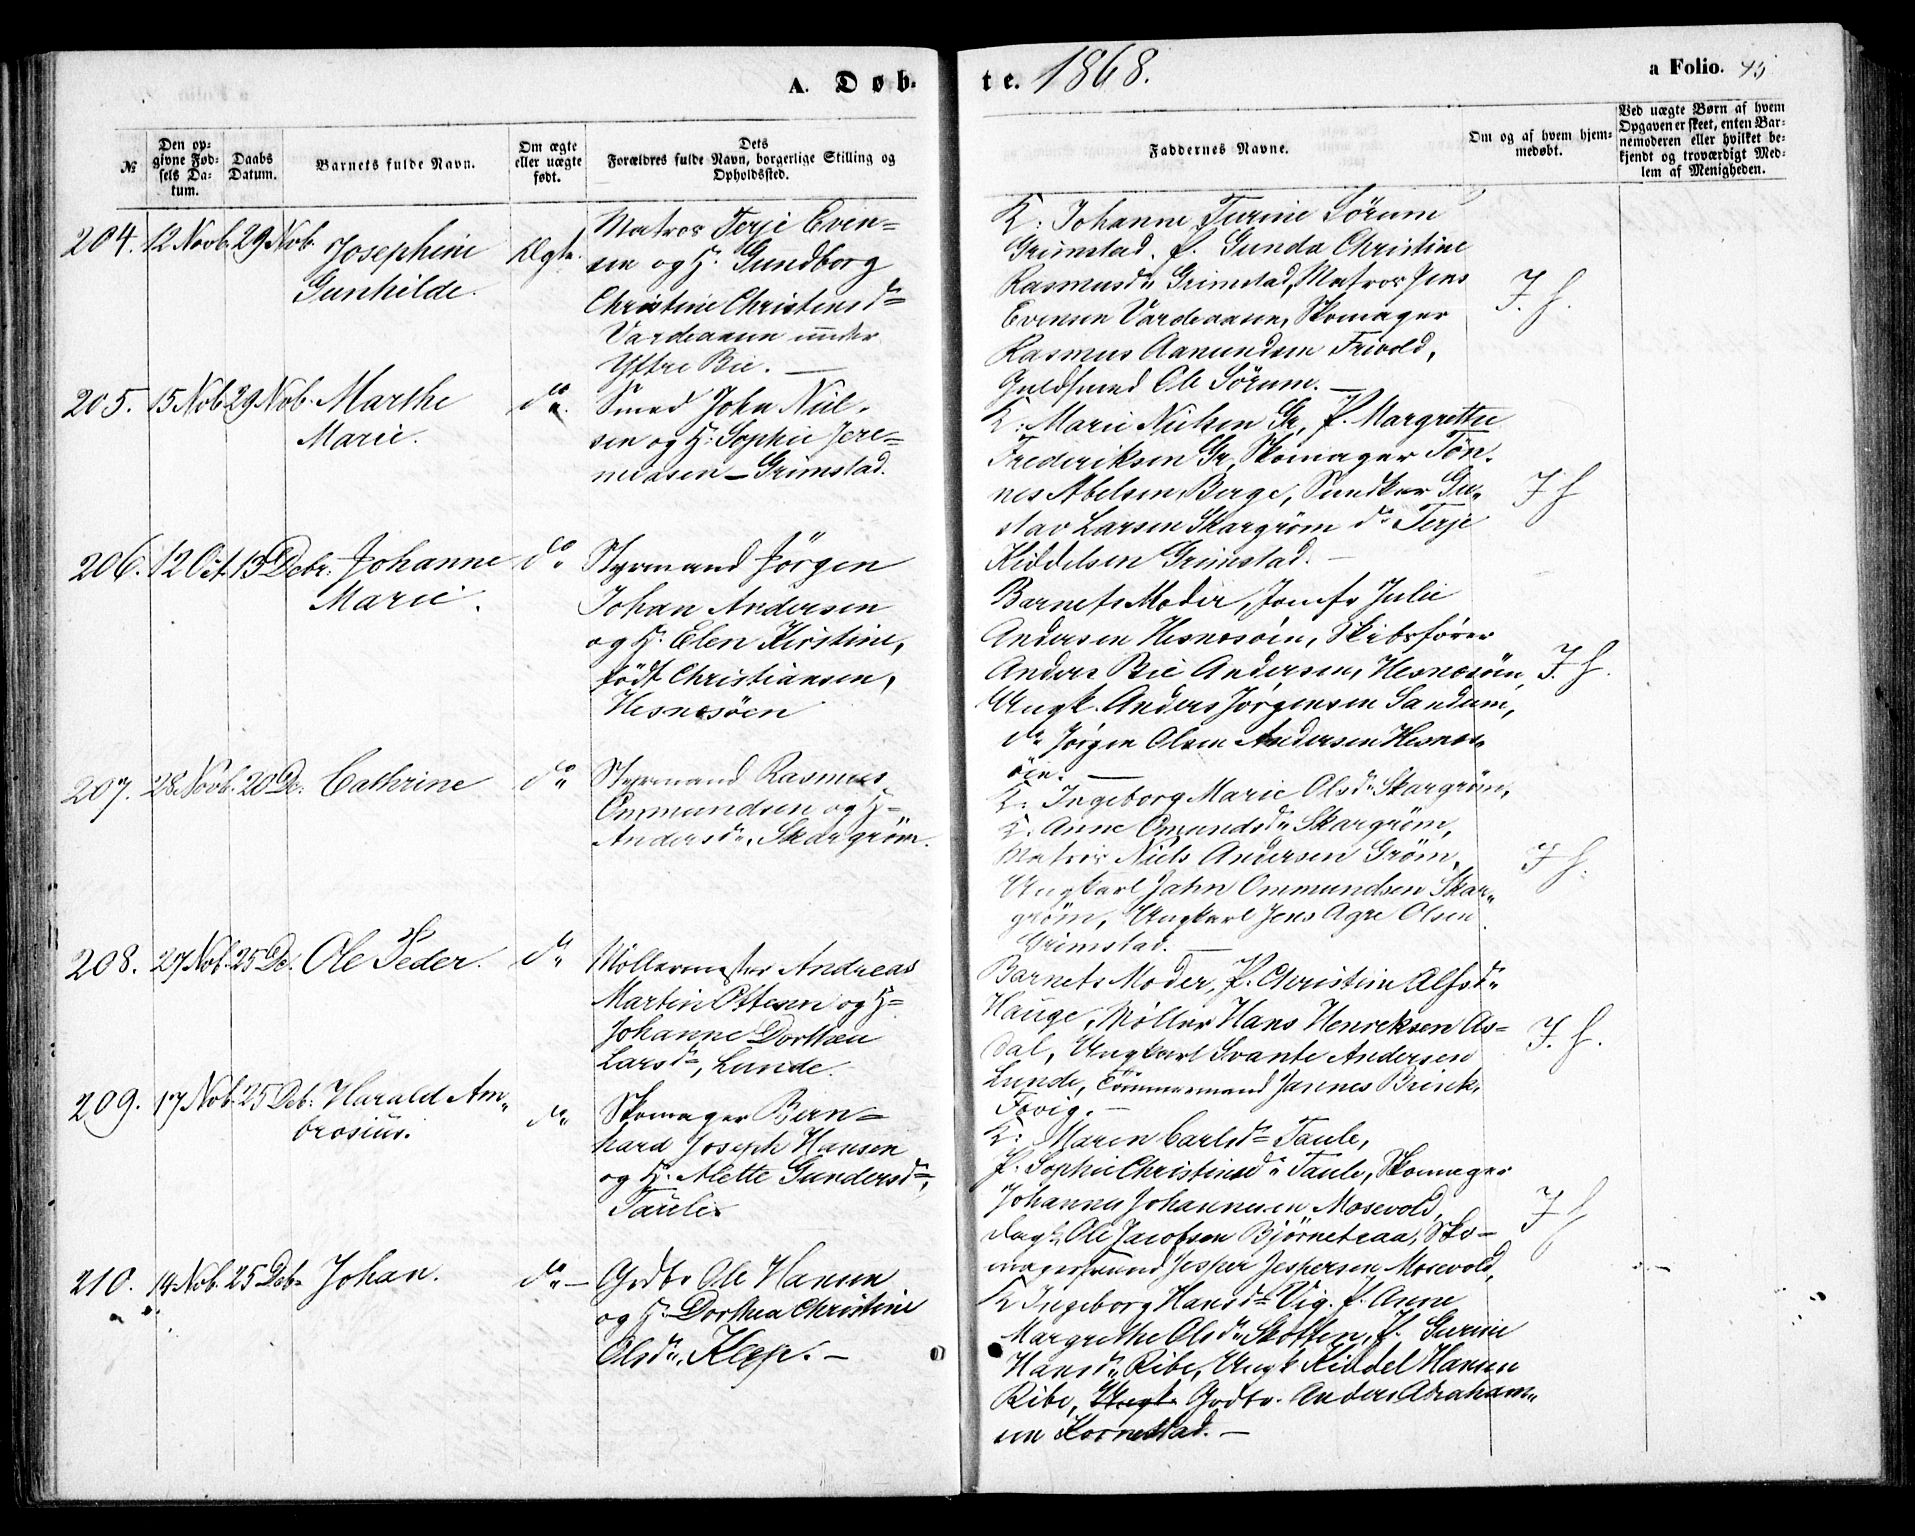 A. Døb-
te. 1868.
a Folio. 45
№
Den op-
givne Fød-
sels Da-
tum.
Daabs
Datum.
Barnets fulde Navn.
Om ægte
eller uægte
født.
Dets
Forældres fulde Navn, borgerlige Stilling og
Opholdssted.
Faddernes Navne.
Om og af hvem hjem-
medøbt.
Ved uægte Børn af hvem
Opgaven er skeet, enten Bar-
nemoderen eller hvilket be-
kjendt og troværdigt Med-
lem af Menigheden.
204. 12 Novb. 29 Nvb. Josephine
Gunhilde.
Ægte.
Matros Terje Even-
sen og H. Gundborg
Christine Christensd
Vardeaasen under
Yttre Bie. —
K: Johanne Turine Sörum
Grimstad. P. Gunda Christine
Rasmusd. Grimstad, Matros Jens
Evensen Vardeaasen, Skomager
Rasmus Aanundsen Frivold,
Guldsmed Ole Sörum. —
J. h.
205. 15 Nob. 29 Nob. Marthe
Marie.
do.
Smed John Niel-
sen og H: Sophie Jere-
measen – Grimstad.
K: Marie Nielsen Gr, P. Margrethe
Frederiksen Gr, Skomager Tön-
nes Abelsen Berge, Gu-
stav Larsen Skargröm do Terje
Kiddelsen Grimstad. —
J h
206. 12 Oct. 13 Decbr. Johanne
Marie.
do
Styrmand Jörgen
Johan Andersen
og H. Elen Kirstine,
födt Christiansen,
Hesnesöen
Barnets Moder, Jomfr Julie
Andersen Hesnesöen, Skibsförer
Anders Bie Andersen, Hesnesöen,
Ungk. Anders Jörgensen Sandum,
do Jörgen Olsen Andersen Hesnes-
öen. —
J. h.
207. 28 Novb. 20 De. Cathrine
do
Styrmand Rasmus
Ommundsen og H
Andersd. Skargröm.
K: Ingeborg Marie Olsd. Skargröm,
K. Anne Omundsd. Skargröm,
Matros Niels Andersen Gröm,
Ungkarl Jahn Ommundsen Skar-
gröm, Ungkarl Jens Agre Olsen
Grimstad. —
J h.
208. 27 Nob. 25 De. Ole Peder.
do
Möllermester Andreas
Martin Ottesen og H
Johanne Dorthea
Larsd, Lunde.
Barnets Moder, P. Christine Alfsd.
Hauge, Möller Hans Henreksen As-
dal, Ungkarl Svante Andersen
Lunde, Tömmermand Jannes Brinck,
Fevig. —
J. h.
209. 17 Nob. 25 Deb. Harald Am-
brosius.
do
Skomager Bern-
hard Joseph Hansen
og H. Alette Gundersd,
Taule.
K: Maren Carlsd Taule,
P. Sophie Christensd. Taule, Skomager
Johannes Johannesen Mosevold,
Ungk. Ole Jacobsen Björnetraa, Sko-
magersvend Jesper Jespersen Mosevold,
J h
210. 14 Nob. 25 Deb. Johan.
do —
Grdbr Ole Hansen
og H. Dorthea Christine
Olsd. Klep. —
K Ingeborg Hansd Vig. P. Anne
Margrethe Olsd. Skotten, P. Gurine
Hansd. Ribe, Ungk Kiddel Hansen
Ribe, Ungk. Grdbr. Anders Abraham-
sen Kornstad. —